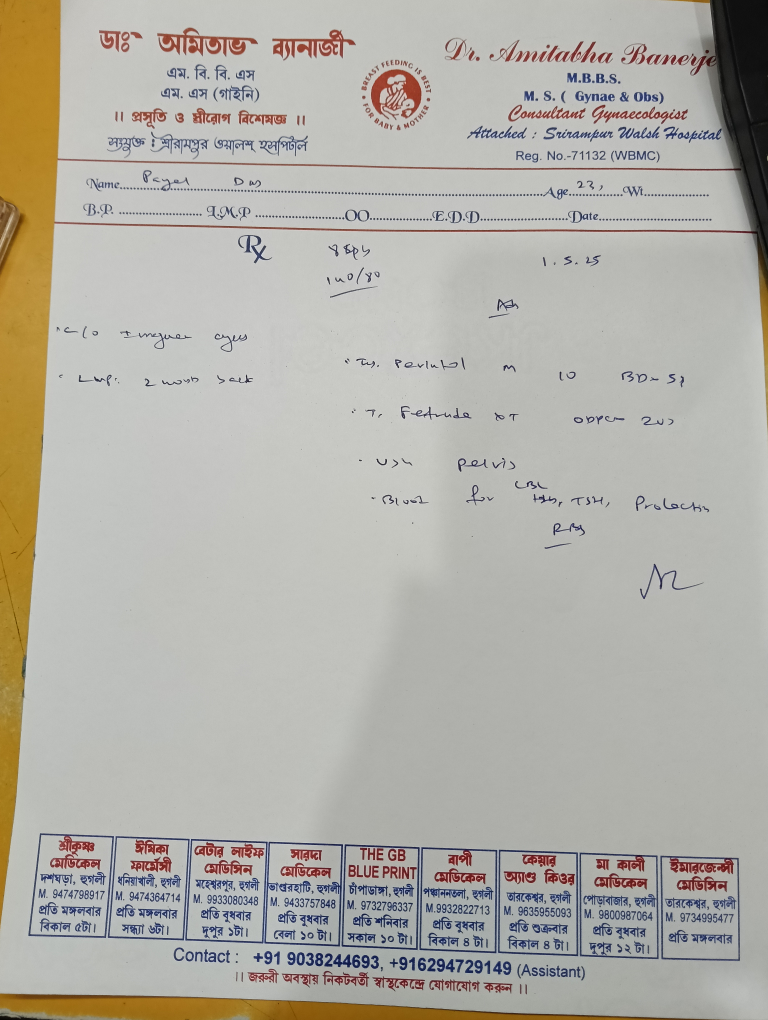 ডাঃ অমিতাভ ব্যানার্জী
এম. বি. বি. এস
এম. এস (গাইনি)
।। প্রসূতি ও স্ত্রীরোগ বিশেষজ্ঞ ।।
সংযুক্ত : শ্রীরামপুর ওয়ালশ্ হসপিটাল
BREAST FEEDING IS BEST
FOR BABY & MOTHER
Dr. Amitabha Banerje
M.B.B.S.
M. S. ( Gynae & Obs)
Consultant Gynaecologist
Attached : Srirampur Walsh Hospital
Reg. No.-71132 (WBMC)
Name Payel Das Age 23, Wt
B.P. L.M.P OO E.D.D Date
Rx
140/80
1.5.25
c/o Irregular cycles
LMP: 2 month back
M 10 BD-5d
USG pelvis
Blood for CBC
TSH, Prolactin
RBS
শ্রীকৃষ্ণ মেডিকেল
দশঘড়া, হুগলী
M. 9474798917
প্রতি মঙ্গলবার
বিকাল ৫টা।
ঈষিকা ফার্মেসী
ধনিয়াখালী, হুগলী
M. 9474364714
প্রতি মঙ্গলবার
সন্ধ্যা ৬টা।
বেটার লাইফ মেডিসিন
মহেশ্বরপুর, হুগলী
M. 9933080348
প্রতি বুধবার
দুপুর ১টা।
সারদা মেডিকেল
ভাণ্ডারহাটি, হুগলী
M. 9433757848
প্রতি বুধবার
বেলা ১০টা।
THE GB
BLUE PRINT
চাঁপাডাঙ্গা, হুগলী
M. 9732796337
প্রতি শনিবার
সকাল ১০ টা।
বাপী মেডিকেল
পঞ্চাননতলা, হুগলী
M. 9932822713
প্রতি বুধবার
বিকাল ৪ টা।
কেয়ার অ্যাণ্ড কিওর
তারকেশ্বর, হুগলী
M. 9635955093
প্রতি শুক্রবার
বিকাল ৪ টা।
মা কালী মেডিকেল
পোড়াবাজার, হুগলী
M. 9800987064
প্রতি বুধবার
দুপুর ১২ টা।
ইমারজেন্সী মেডিসিন
তারকেশ্বর, হুগলী
M. 9734995477
প্রতি মঙ্গলবার
Contact : +91 9038244693, +916294729149 (Assistant)
।। জরুরী অবস্থায় নিকটবর্তী স্বাস্থ্যকেন্দ্রে যোগাযোগ করুন ।।